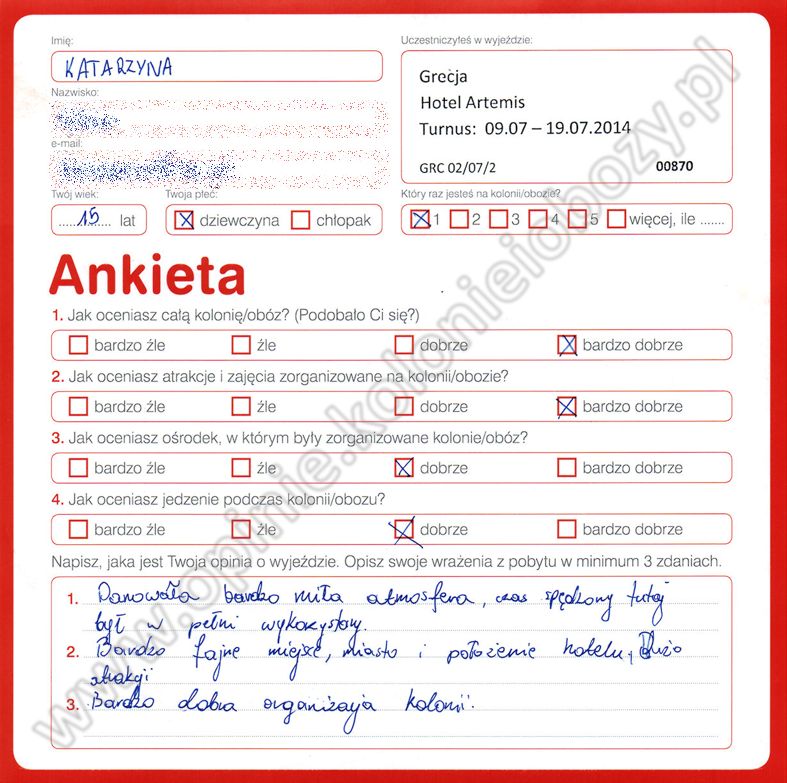 Imię:
KATARZYNA
Nazwisko:
e-mail:
Uczestniczyłeś w wyjeździe:
Grecja
Hotel Artemis
Turnus: 09.07 – 19.07.2014
GRC 02/07/2 00870
Twój wiek:
15 lat
Twoja płeć:
dziewczyna chłopak
Który raz jesteś na kolonii/obozie?
1 2 3 4 5 więcej, ile .......
Ankieta
1. Jak oceniasz całą kolonię/obóz? (Podobało Ci się?)
bardzo źle źle dobrze bardzo dobrze
2. Jak oceniasz atrakcje i zajęcia zorganizowane na kolonii/obozie?
bardzo źle źle dobrze bardzo dobrze
3. Jak oceniasz ośrodek, w którym były zorganizowane kolonie/obóz?
bardzo źle źle dobrze bardzo dobrze
4. Jak oceniasz jedzenie podczas kolonii/obozu?
bardzo źle źle dobrze bardzo dobrze
Napisz, jaka jest Twoja opinia o wyjeździe. Opisz swoje wrażenia z pobytu w minimum 3 zdaniach.
1. Panowała bardzo miła atmosfera, czas spędzony tutaj
był w pełni wykorzystany.
2. Bardzo fajne miejsce, miasto i położenie hotelu, Dużo
atrakcji
3. Bardzo dobra organizacja kolonii.
www.opinie.kolonieiobozy.pl